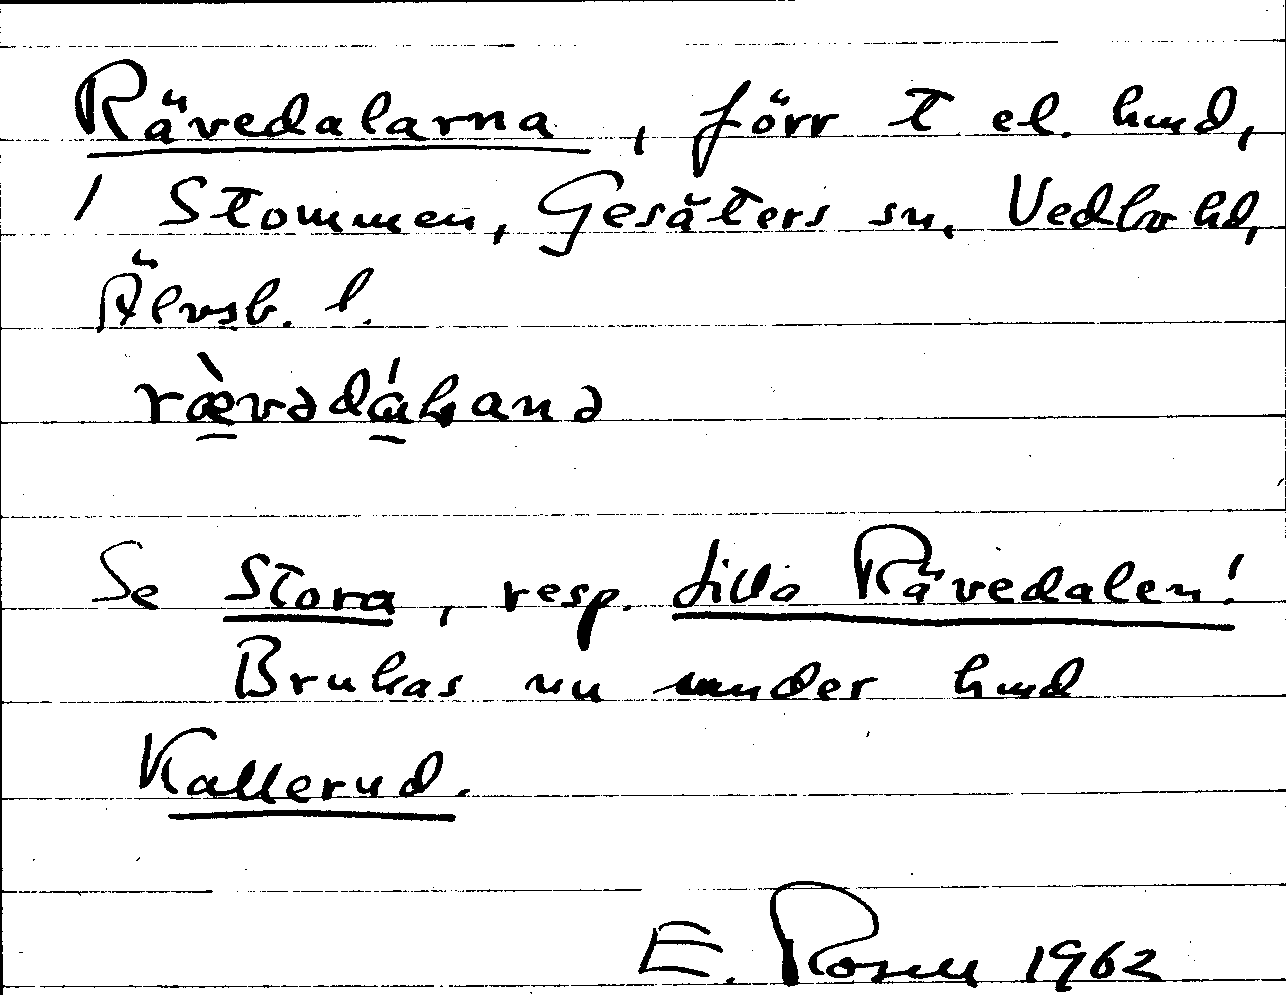 Rävedalarna, förr t el. hmd,
/ Stommen, Gesäters sn, Vedbo hd,
Älvsb. l.
Se Stora, resp. Lilla Rävedalen!
Brukas nu under hmd
Kallerud.
E. Rosell 1962